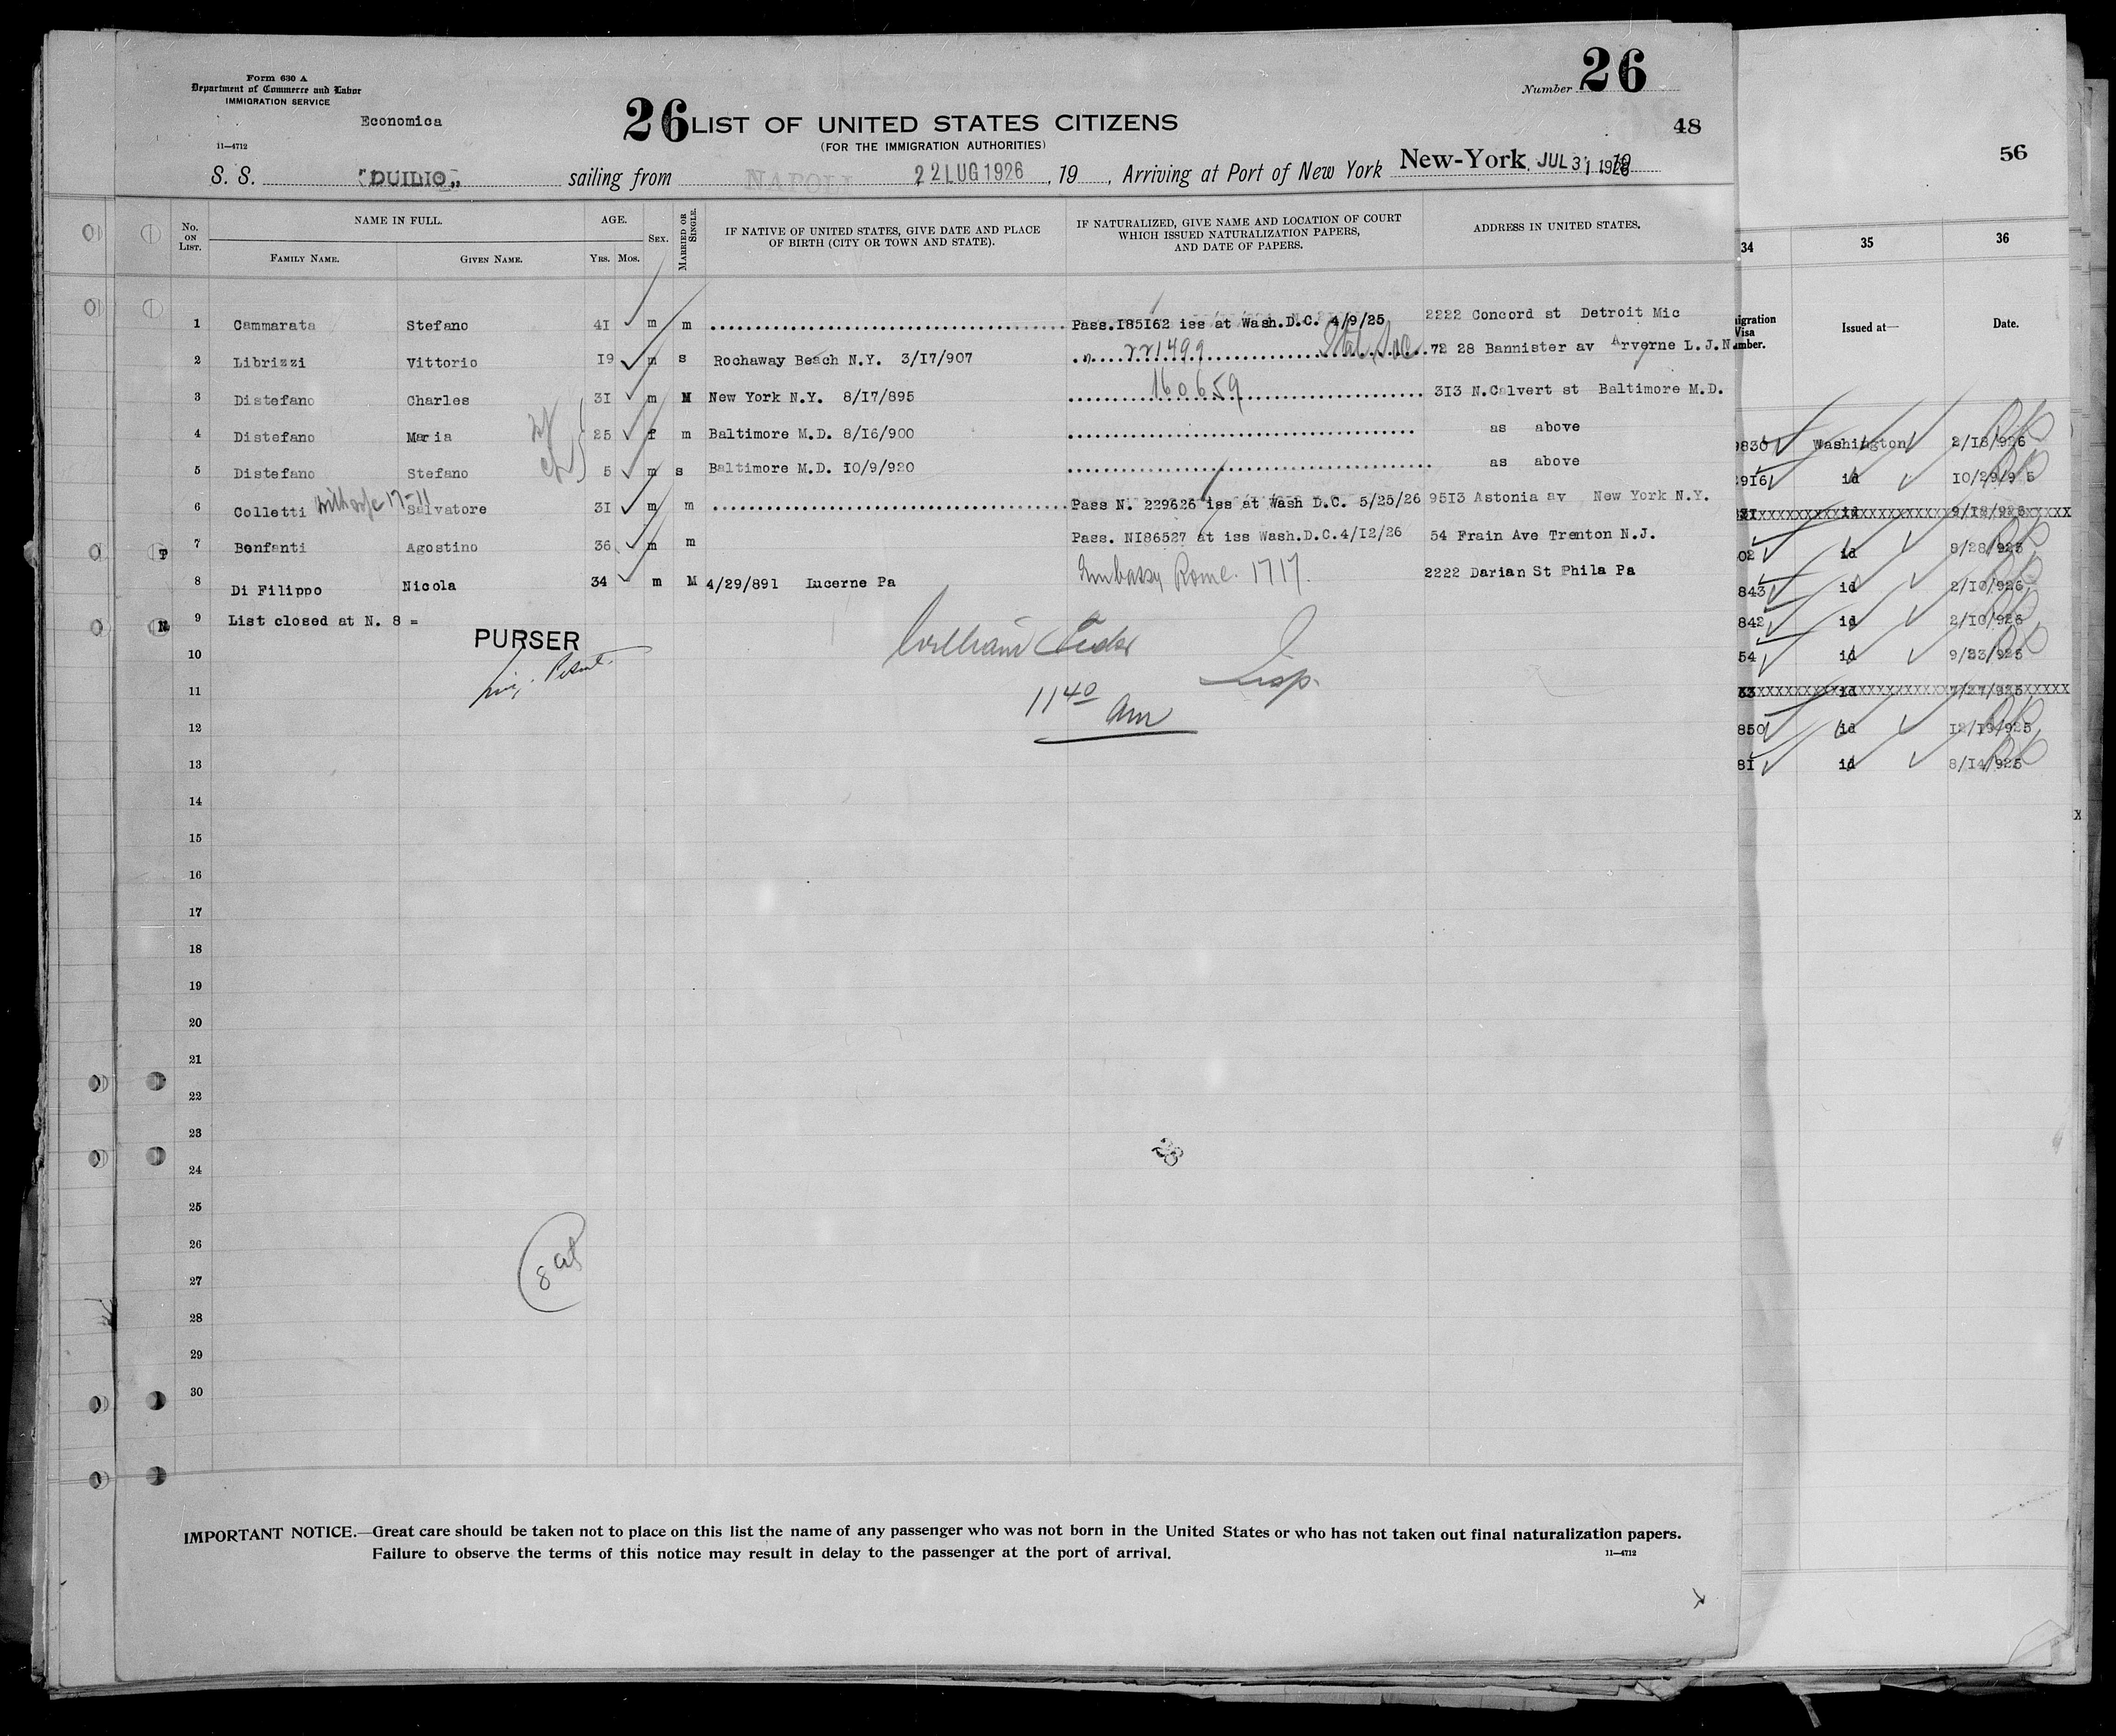 Form 630 A
Department of Commerce and Labor
IMMIGRATION SERVICE
Economica
11—4712
26 LIST OF UNITED STATES CITIZENS
(FOR THE IMMIGRATION AUTHORITIES)
Number 26
48
S. S. "DUILIO" sailing from NAPOLI 22 LUG 1926, 19 , Arriving at Port of New York New-York, JUL 31 1926
No. ON LIST. NAME IN FULL. AGE. SEX. MARRIED OR SINGLE. IF NATIVE OF UNITED STATES, GIVE DATE AND PLACE OF BIRTH (CITY OR TOWN AND STATE). IF NATURALIZED, GIVE NAME AND LOCATION OF COURT WHICH ISSUED NATURALIZATION PAPERS, AND DATE OF PAPERS. ADDRESS IN UNITED STATES.
FAMILY NAME. GIVEN NAME. YRS. MOS.
1 Cammarata Stefano 4I m m Pass.I85I62 iss at Wash.D.C. 4/9/25 2222 Concord st Detroit Mic
2 Librizzi Vittorio I9 m s Rochaway Beach N.Y. 3/17/907 n. 221499 72 28 Bannister av Arverne L.J.N
3 Distefano Charles 3I m M New York N.Y. 8/I7/895 160659 3I3 N.Calvert st Baltimore M.D.
4 Distefano Maria 25 f m Baltimore M.D. 8/I6/900 as above
5 Distefano Stefano 5 m s Baltimore M.D. I0/9/920 as above
6 Colletti 17-11 Salvatore 3I m m Pass N. 229626 iss at Wash D.C. 5/25/26 95I3 Astonia av New York N.Y.
7 Bonfanti Agostino 36 m m Pass. NI86527 at iss Wash.D.C.4/I2/26 54 Frain Ave Trenton N.J.
8 Di Filippo Nicola 34 m M 4/29/891 Lucerne Pa Embassy Rome. 1717. 2222 Darian St Phila Pa
9 List closed at N. 8 =
PURSER
William
Insp.
11 40 am
10
11
12
13
14
15
16
17
18
19
20
21
22
23
24
25
26
27
28
29
30
IMPORTANT NOTICE.—Great care should be taken not to place on this list the name of any passenger who was not born in the United States or who has not taken out final naturalization papers.
Failure to observe the terms of this notice may result in delay to the passenger at the port of arrival.
11—4712
56
34 35 36
igration Visa mber. Issued at— Date.
9830 Washington 2/I8/926
2916 id I0/29/9 5
31 id 9/I2/926
02 id 9/28/925
843 id 2/I0/926
842 id 2/I0/926
54 id 9/23/925
33 id 7/27/925
850 id I2/I9/925
8I id 8/I4/925